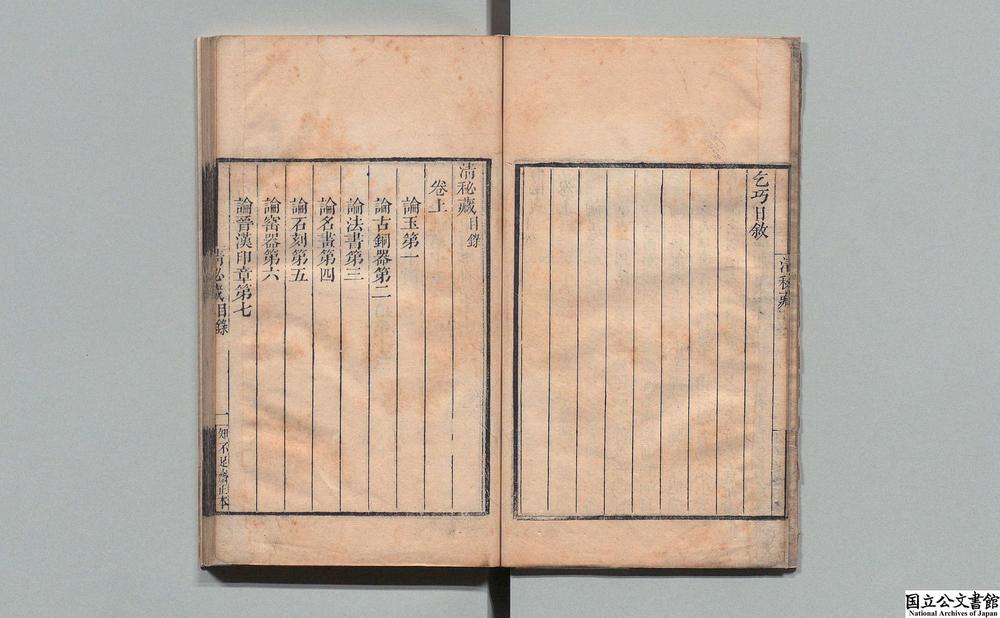 乞巧日敘
清秘藏
清秘藏目錄
卷上
論玉第一
論古銅器第二
論法書第三
論名畫第四
論石刻第五
論窑器第六
論晉漢印章第七
清秘藏目錄
一
知不足齋正本
国立公文書館
National Archives of Japan